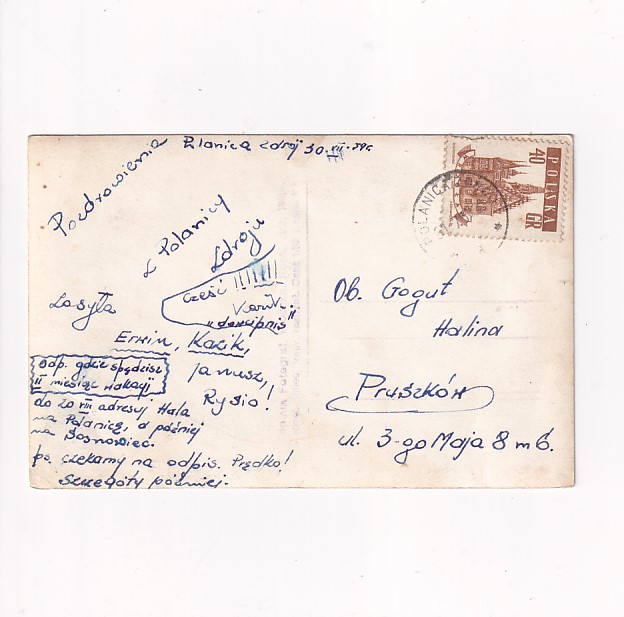 Polanica Zdrój 30. VII-59r.
Pozdrowienia
z Polanicy
Zdroju
Zasyła
Cześć !!!!!
Kazik.
"dowcipnis"
Erwin, Kazik,
Janusz,
Rysio!
Odp. gdzie spędzisz
II miesiąc wakacji
do 20 VIII adresuj Hala
na Polanicę, a później
na Sosnowiec.
ps. czekamy na odpis. Prędko!
Szczegóły później.
40
GR
POLSKA
POLANICA
Ob. Gogut
Halina
Pruszków
ul. 3-go Maja 8 m 6.